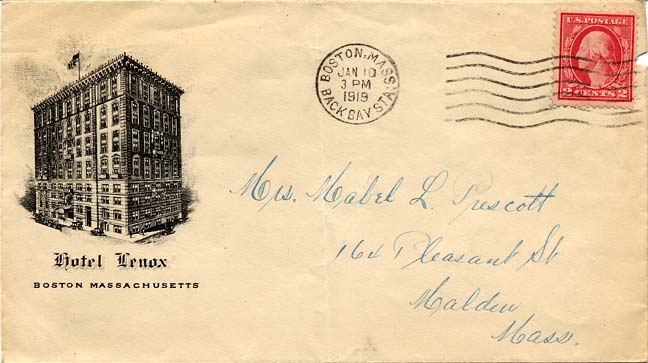 BOSTON, MASS.
JAN 10
3 PM
1919
BACK BAY STA.
U.S. POSTAGE
2 CENTS 2
Hotel Lenox
BOSTON MASSACHUSETTS
Mrs. Mabel L. Prescott
164 Pleasant St
Malden
Mass.